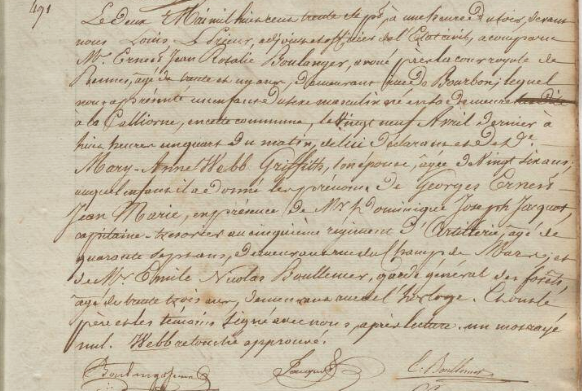 491
Le Deux Mai mil huit cent trente sept, à une heure du soir, devant
nous Louis Le Sieur, adjoint et officier de l'Etat civil, a comparu
Mr. Ernest Jean Rosalie Boulanger, avoué près la cour royale de
Rennes, âgé de trente et un ans, demeurant rue de Bourbon; lequel
nous a présenté un enfant du sexe masculin né en sa demeure
à la Calliorne, en cette commune, le vingt neuf Avril dernier à
huit heures un quart du matin, de lui déclarant et de De.
Mary-Anne Webb Griffith, son épouse, âgée de
auquel enfant il a donné les prénoms de Georges Ernest
Jean Marie, en présence de Mr. Dominique Joseph Jacquot,
capitaine-trésorier au cinquième régiment d'Artillerie, âgé de
quarante sept ans, demeurant rue du Champ de Mars; et
de Mr. Emile Nicolas Boullemer, garde général des forêts,
âgé de trente trois ans, demeurant rue de l'horloge. Et ont le
père et les témoins signé avec nous, après lecture. un mot rayé
nul. Webb retouché approuvé.
E. Boullemer